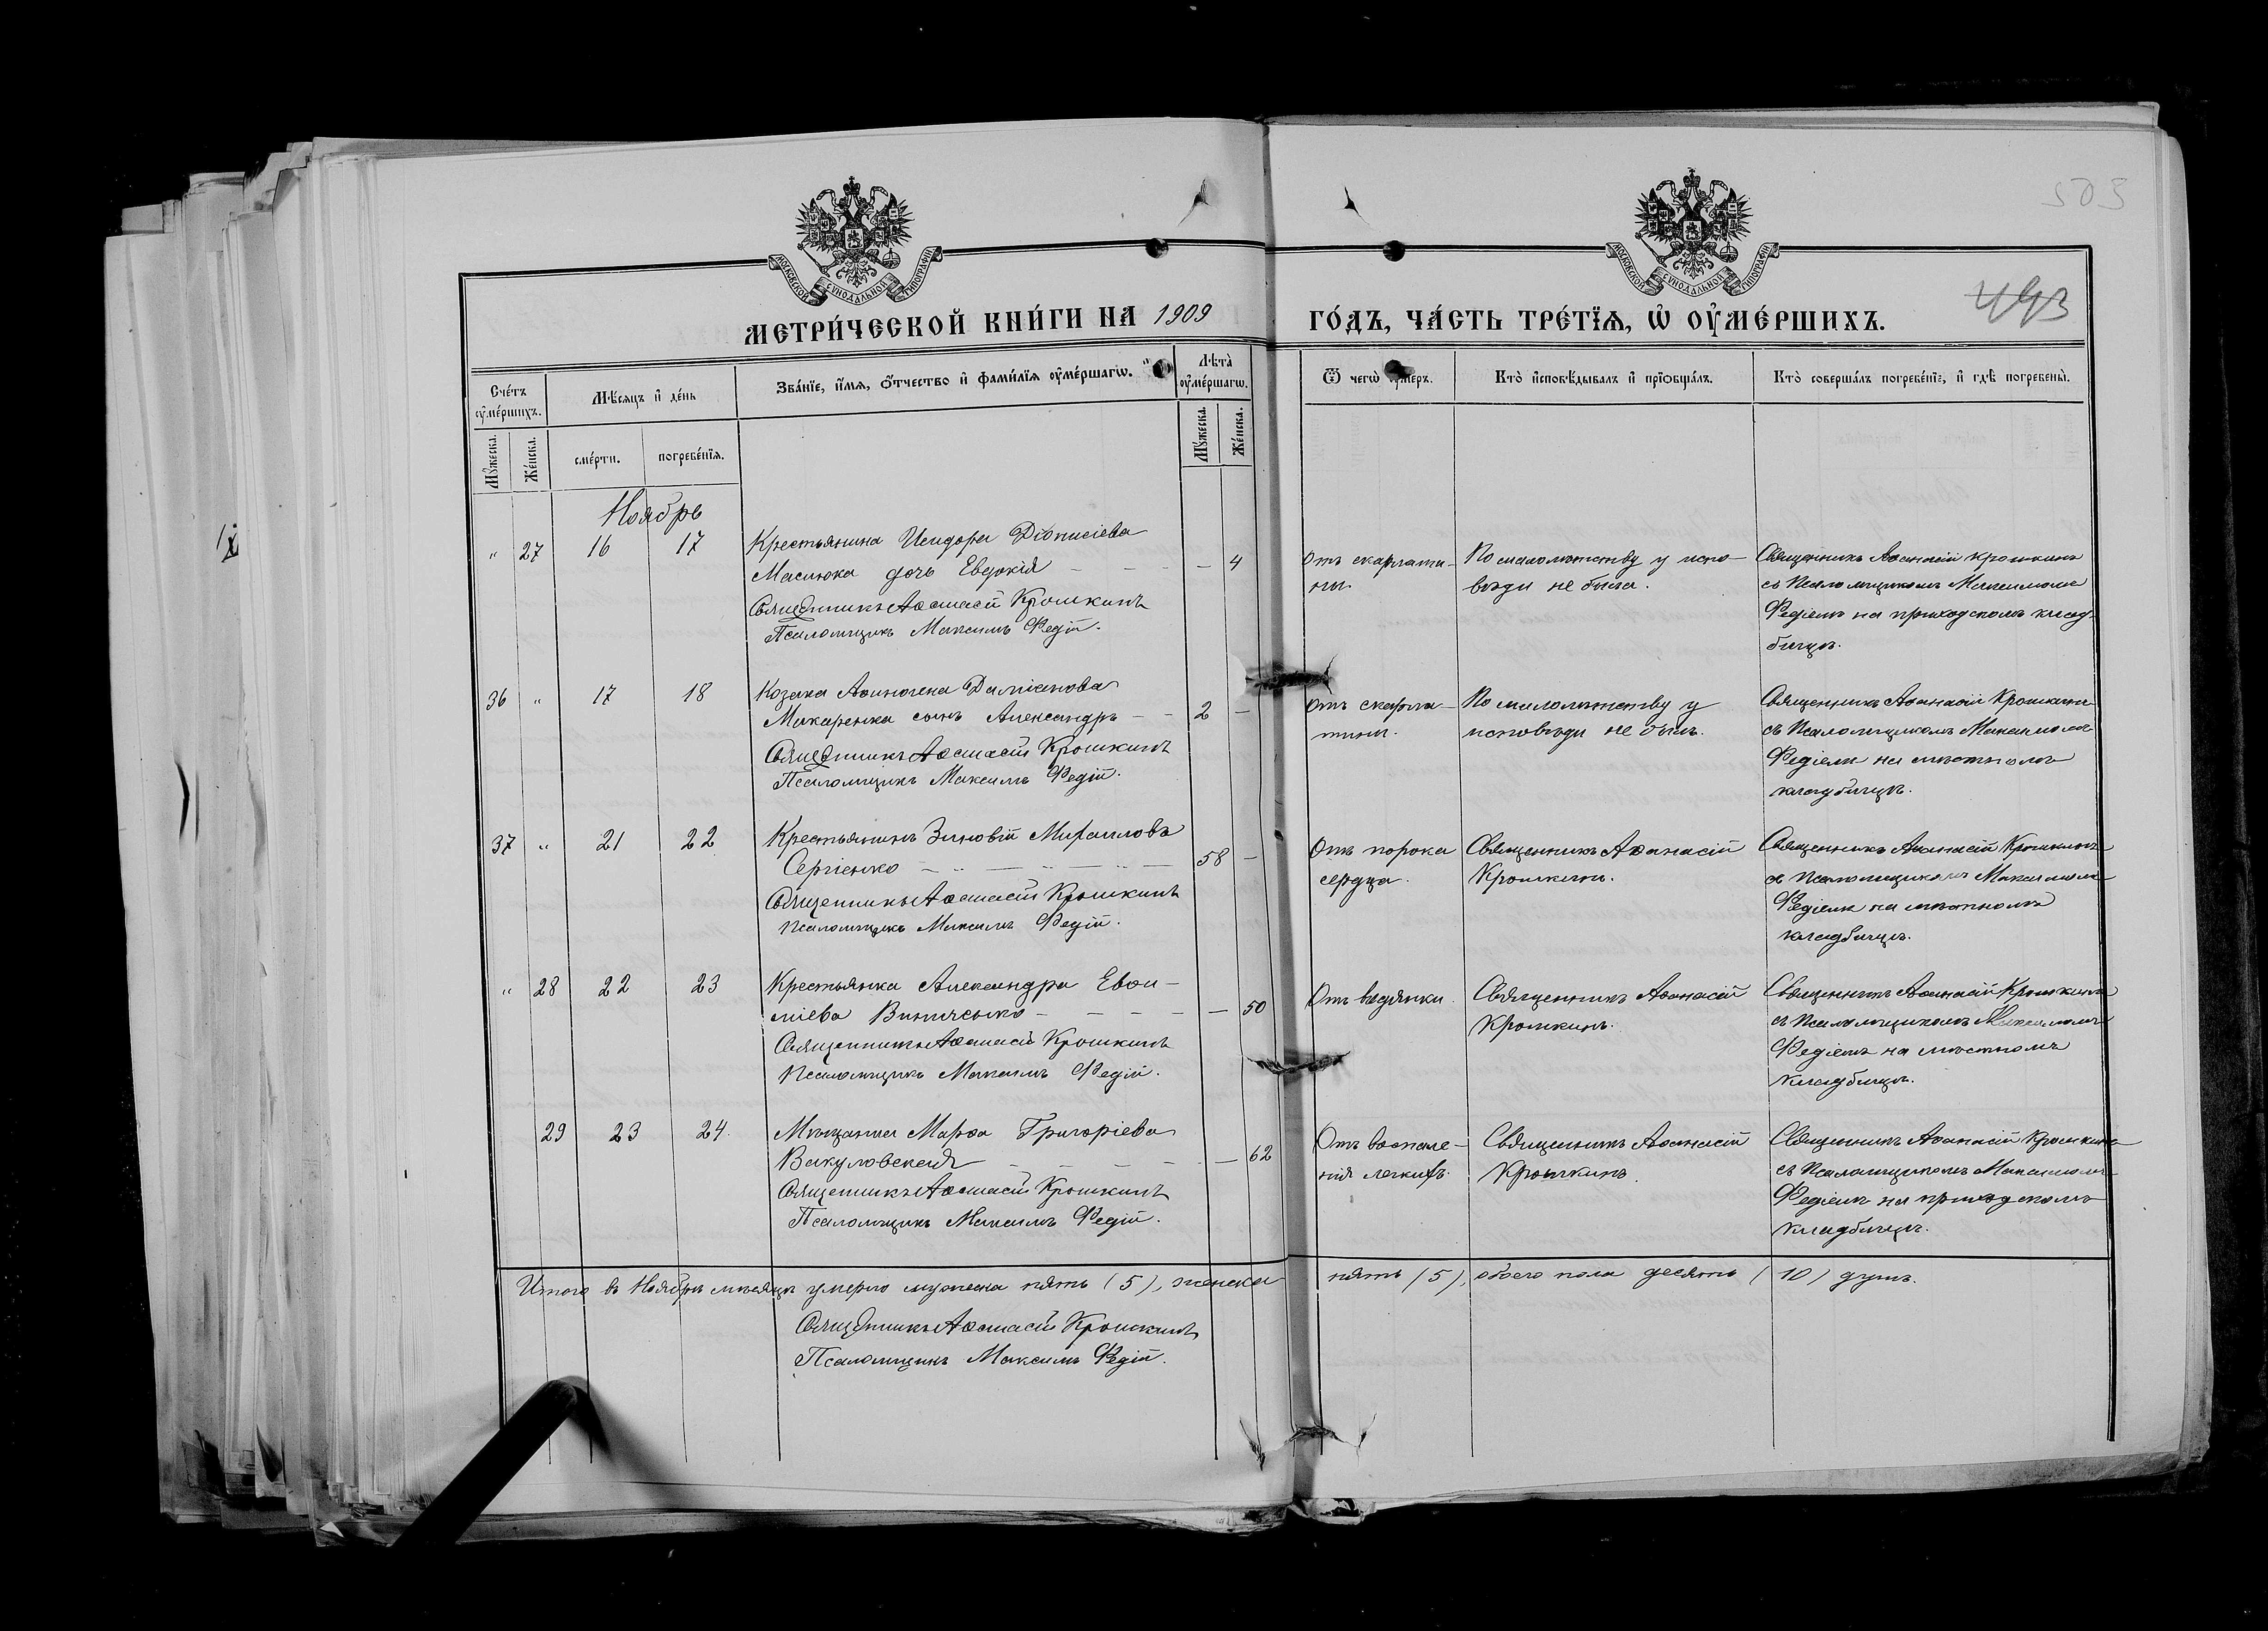 503
МОСКОВСКОЙ СѴНОДАЛЬНОЙ ТИПОГРАФІИ
МОСКОВСКОЙ СѴНОДАЛЬНОЙ ТИПОГРАФІИ
493
МЕТРИ́ЧЕСКОЙ КНИ́ГИ НА 1909 ГО́ДЪ, ЧА́СТЬ ТРЕ́ТЇѦ, Ѡ҆ ОУ҆МЕ́РШИХЪ.
Сче́тъ оу҆ме́ршихъ.
Мꙋ́жеска.
Же́нска.
Мѣ́сяцъ и҆ де́нь
сме́рти.
погребе́нїѧ.
Зва́нїе, и҆́мѧ, ѻ҆́тчество и҆ фами́лїѧ оу҆ме́ршагѡ.
Лѣта̀ оу҆ме́ршагѡ.
Мꙋ́жеска.
Же́нска.
Ѿ чегѡ̀ оу҆́меръ.
Кто̀ и҆сповѣ́дывалъ и҆ прїѡбща́лъ.
Кто̀ соверша́лъ погребе́нїе, и҆ гдѣ̀ погребены̀.
Ноябрь
" 27 16 17 Крестьянина Исидора Діонисіева
Масюка дочь Евдокія - - - - 4
Священникъ Аѳанасій Крошкинъ
Псаломщикъ Максимъ Федій.
Отъ скарлати-
ны.
По малолѣтству у испо-
вѣди не была.
Священникъ Аѳанасій Крошкинъ
съ Псаломщикомъ Максимомъ
Федіемъ на приходскомъ клад-
бищѣ.
36 " 17 18 Козака Аѳиногена Даміанова
Макаренка сынъ Александръ - - 2 -
Священникъ Аѳанасій Крошкинъ
Псаломщикъ Максимъ Федій.
Отъ скарла-
тины.
По малолѣтству у
исповѣди не былъ.
Священникъ Аѳанасій Крошкинъ
съ Псаломщикомъ Максимомъ
Федіемъ на мѣстномъ
кладбищѣ.
37 " 21 22 Крестьянинъ Зиновій Михаиловъ
Сергіенко - - - - 58 -
Священникъ Аѳанасій Крошкинъ
Псаломщикъ Максимъ Федій.
Отъ порока
сердца.
Священникъ Аѳанасій
Крошкинъ.
Священникъ Аѳанасій Крошкинъ
съ Псаломщикомъ Максимомъ
Федіемъ на мѣстномъ
кладбищѣ.
" 28 22 23 Крестьянка Александра Евѳи-
міева - - - - - 50
Священникъ Аѳанасій Крошкинъ
Псаломщикъ Максимъ Федій.
Отъ водянки.
Священникъ Аѳанасій
Крошкинъ.
Священникъ Аѳанасій Крошкинъ
съ Псаломщикомъ Максимомъ
Федіемъ на мѣстномъ
кладбищѣ.
29 23 24. Мѣщанка Марѳа Григоріева
Вакуловская - - - - - 62
Священникъ Аѳанасій Крошкинъ
Псаломщикъ Максимъ Федій.
Отъ воспале-
нія легкихъ.
Священникъ Аѳанасій
Крошкинъ.
Священникъ Аѳанасій Крошкинъ
съ Псаломщикомъ Максимомъ
Федіемъ на приходскомъ
кладбищѣ.
Итого въ Ноябрѣ мѣсяцѣ умерло мужеска пять (5), женска пять (5), обоего пола десять (10) душъ.
Священникъ Аѳанасій Крошкинъ
Псаломщикъ Максимъ Федій.